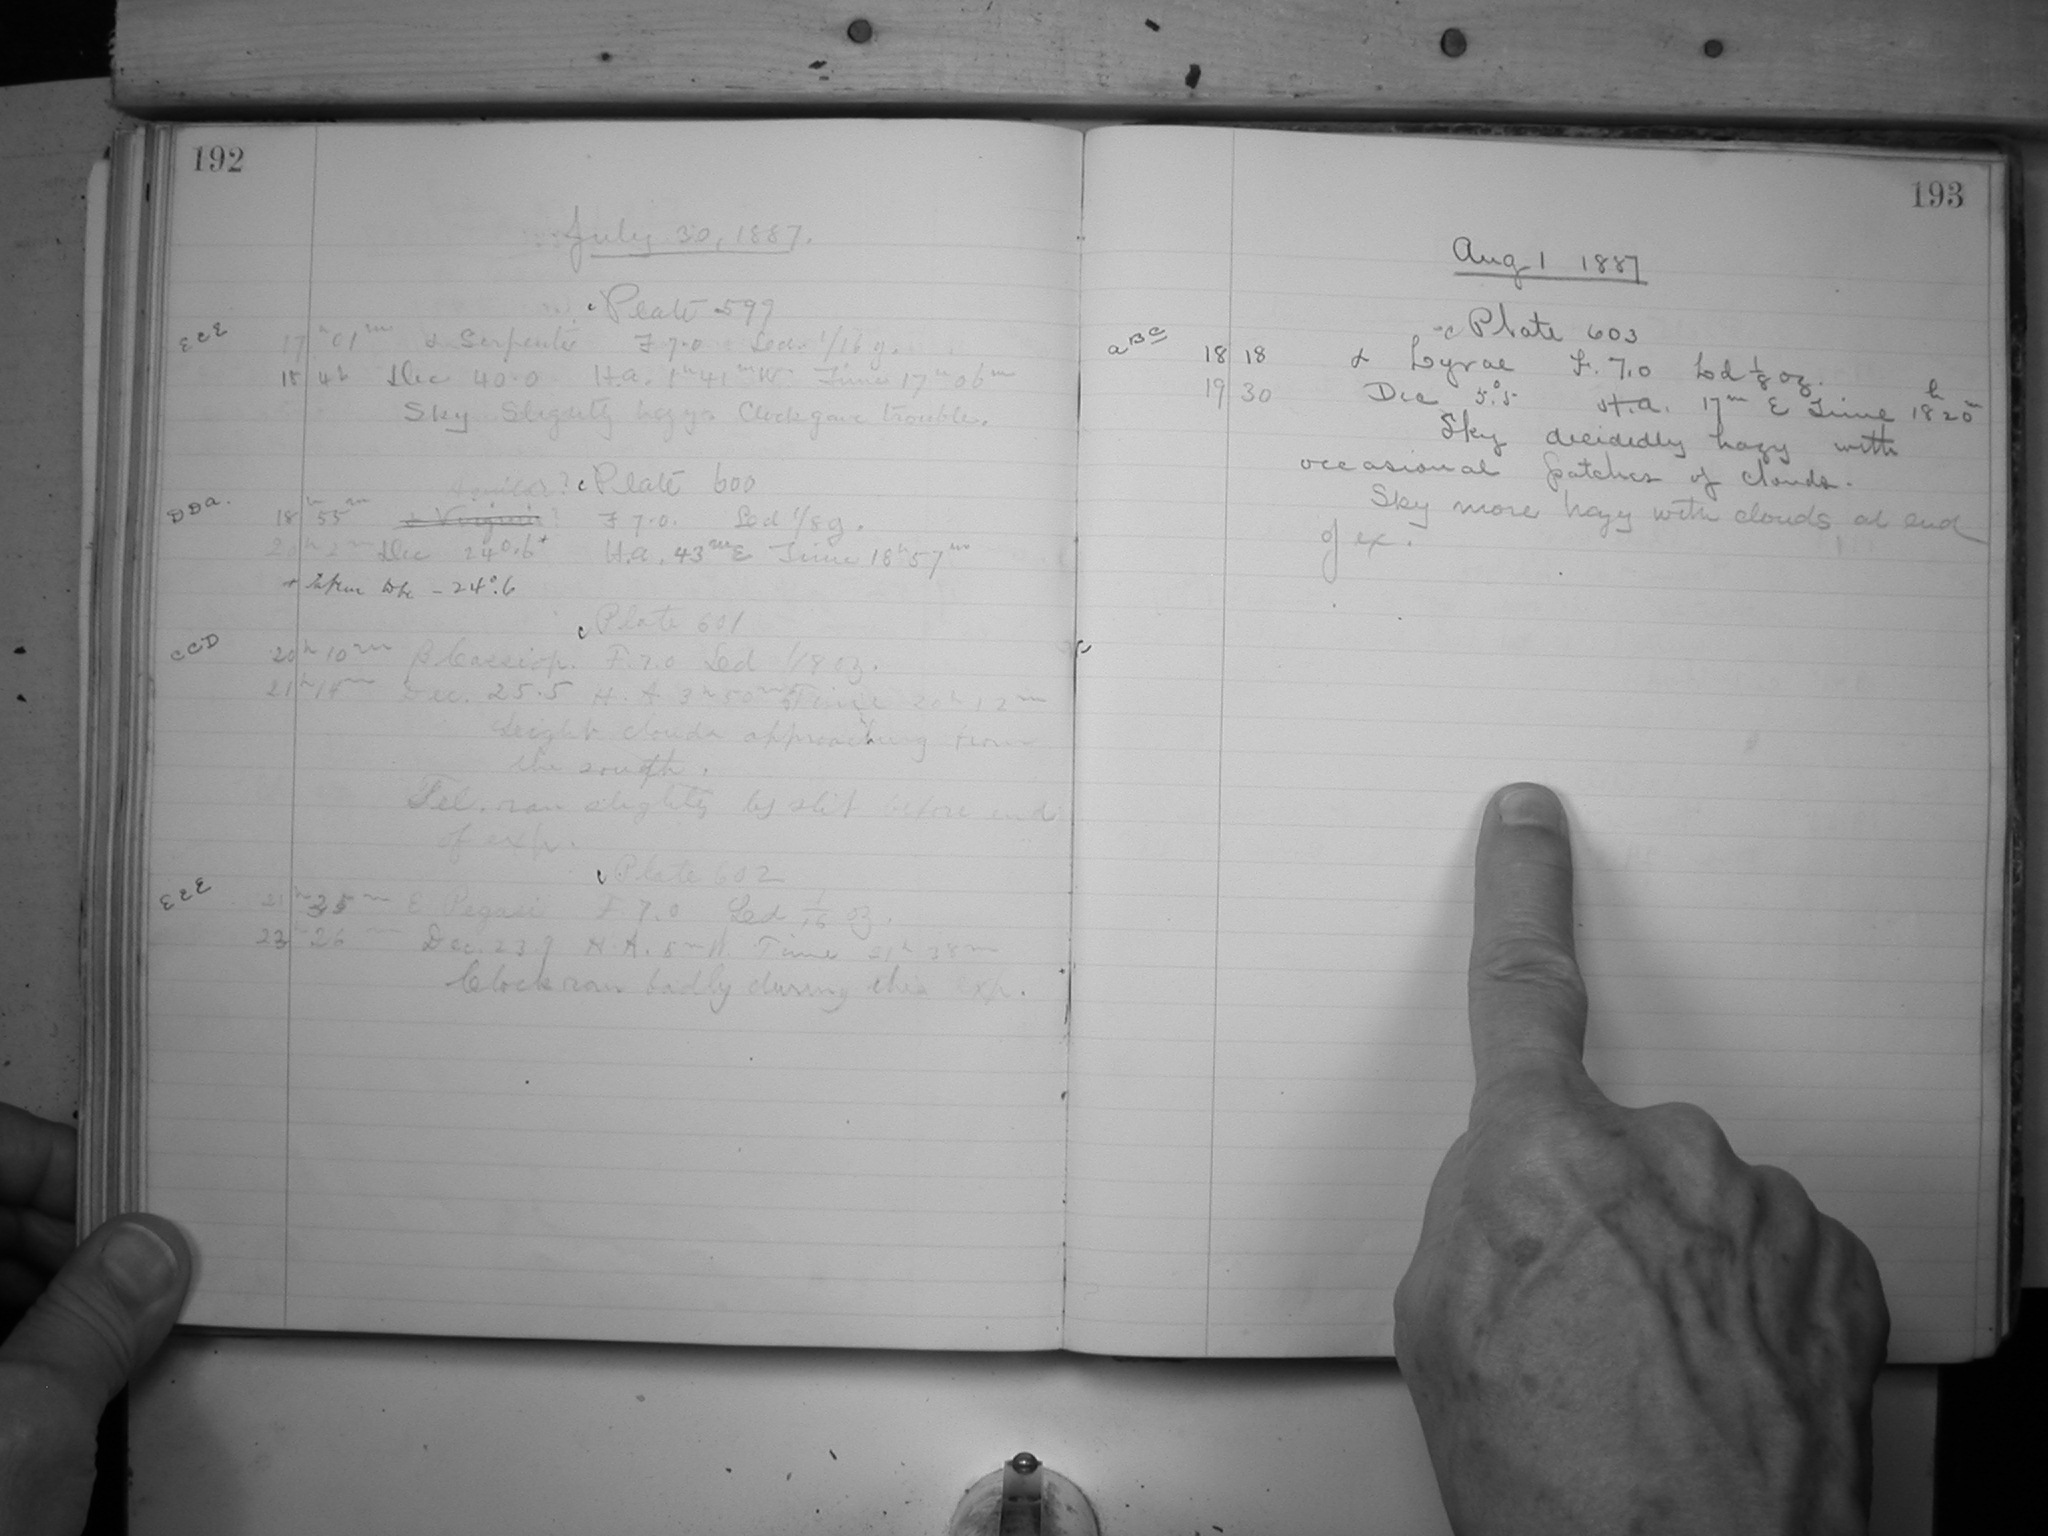 192
July 30, 1887.
c Plate 599
ECE 17h 01m α Serpentis F 7.0 Led. 1/16 g.
18 42 Dec 40.0 H.a. 1h 41m W Time 17h 06m
Sky Slightly hazy Clock gave trouble.
c Plate 600
DDa. 18h 55m F 7.0. Led 1/8 g.
20h 2m Dec 24°.6+ H.a. 43m E Time 18h 57m
Dec - 24°.6
c Plate 601
CCD 20h 10m β Cassiop. F. 7.0 Led 1/8 oz.
21h 14m Dec. 25.5 H. A 3h 50m E Time 20h 12m
Leight clouds approaching from
the south.
Tel. ran slightly by slit before end
of exp.
c Plate 602
EEE 21h 35m E Pegasi F. 7.0 Led 1/16 oz.
23 26m Dec. 23.9 H. A. 5m W. Time 21h 38m
Clock ran badly during this exp.
193
Aug 1 1887
c Plate 603
aBC 18 18 α Lyrae F. 7.0 Ld 1/8 oz.
19 30 Dec 5°.5 H.a. 17m E Time 18h 20m
Sky decidedly hazy with
occasional patches of clouds.
Sky more hazy with clouds at end
of ex.